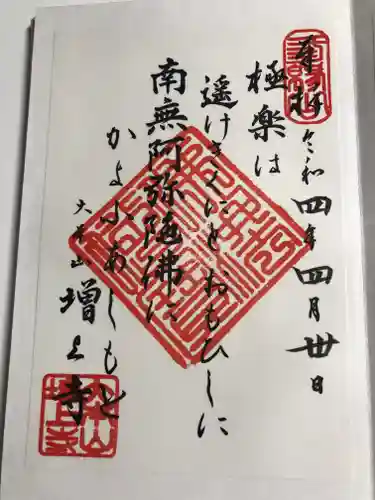 奉拝
令和四年四月廿日
極楽は
遥けきくにとおもひしに
南無阿弥陀佛に
かよふあしもと
大本山
増上寺